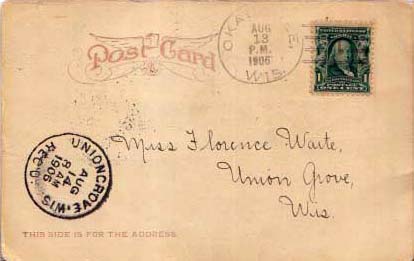 Post Card
AUG
13
P.M.
1906
WIS.
1
ONE CENT
Miss Florence Waite,
Union Grove,
Wis.
UNION GROVE, WIS.
AUG
14
8 AM
1906
REC'D.
THIS SIDE IS FOR THE ADDRESS